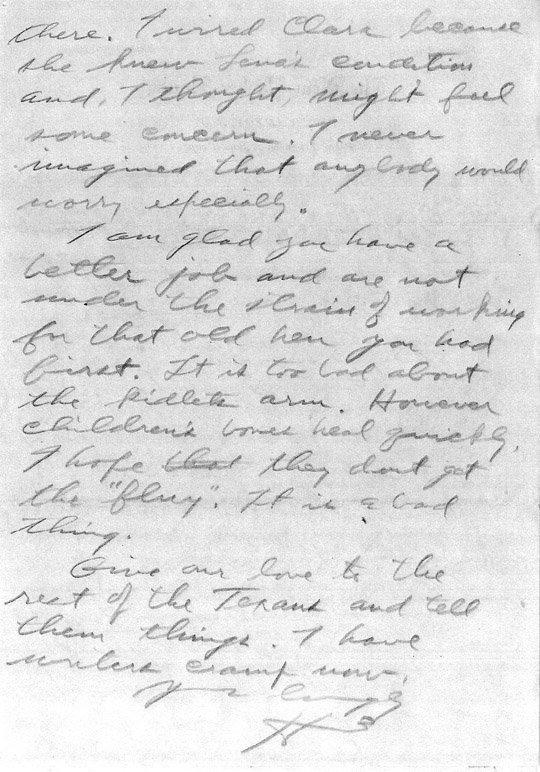 there. I wired Clara because
she knew Lena's condition
and, I thought, might feel
some concern. I never
imagined that anybody would
worry especially.
I am glad you have a
better job and are not
under the strain of working
for that old hen you had
first. It is too bad about
the kidlets arm. However
children's bones heal quickly.
I hope that they dont get
the "fluy". It is a bad
thing.
Give our love to the
rest of the Texans and tell
them things. I have
writers cramp now.